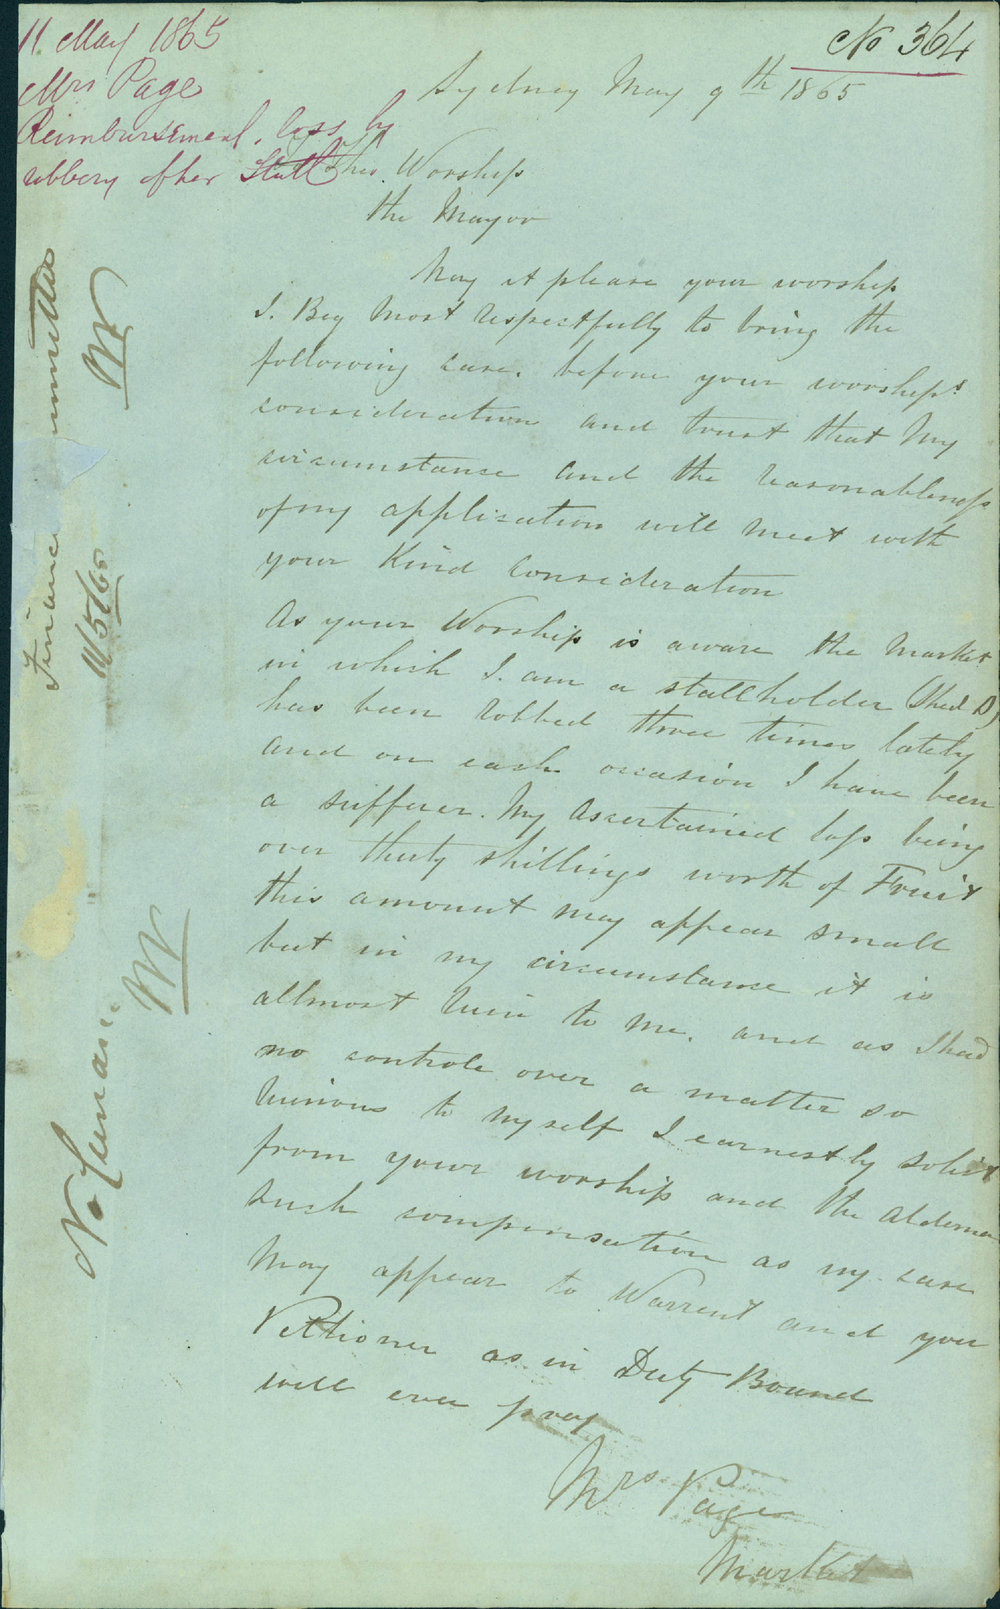 11 May 1865
Mrs Page
Reimbursement, loss by
robbery of her Stall
No 364
Sydney May 9th 1865
His Worship
the Mayor
May it please your worship
I. Beg most respectfully to bring the
following case. before your worships
consideration and trust that my
circumstance and the reasonableness
of my application will meet with
your Kind consideration
As your Worship is aware the Market
in which I. am a stallholder (Shed D)
has been robbed three times lately
and on each occasion I have been
a sufferer. My ascertained loss being
over thirty shillings worth of Fruit
this amount may appear small
but in my circumstance it is
allmost ruin to me. and as I had
no controle over a matter so
ruinous to myself I earnestly solicit
from your worship and the Alderman
such compensation as my case
may appear to Warrent and your
Petitioner as in Duty Bound
will ever pray
Mrs Page
Market
Finance Committee
11/5/65